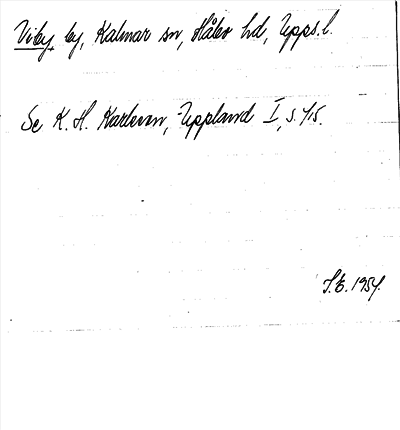 Viby, by, Kalmar sn, Håbo hd, Upps. l.
Se K. H. Karlsson, Uppland I, s. 45.
S.E. 1954.